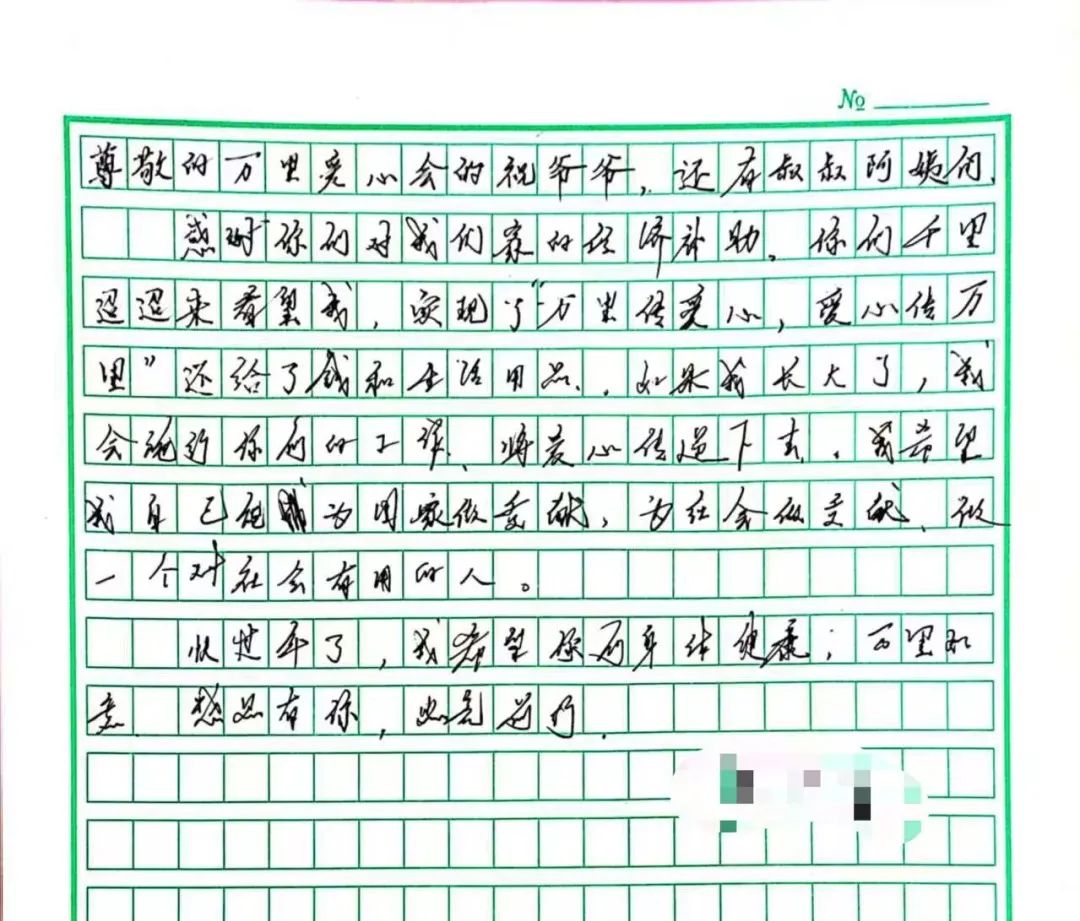 №
尊敬的万里爱心会的祝爷爷,还有叔叔阿姨们,
感谢你们对我们家的经济补助。你们千里
迢迢来看望我,实现了“万里传爱心,爱心传万
里”还给了钱和生活用品.如果我长大了,我
会继续你们的工作、将爱心传递下去.我希望
我自己能为国家做贡献,为社会做贡献、做
一个对社会有用的人。
快过年了,我希望你们身体健康;万里如
意 感恩有你,